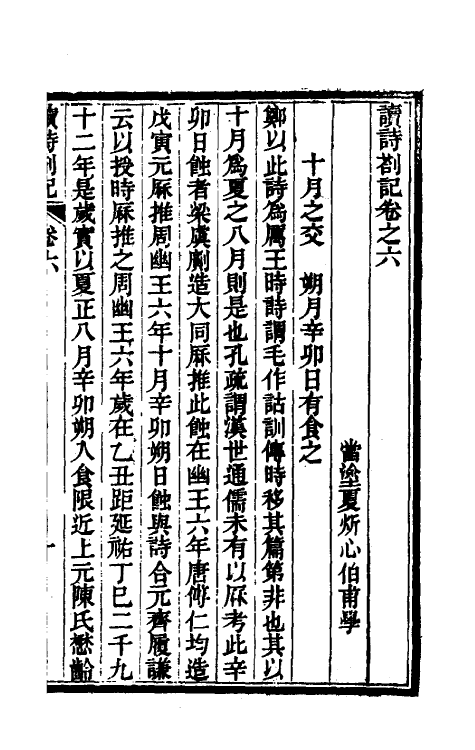 讀詩劄記卷之六
當塗夏炘心伯甫學
十月之交　朔月辛卯日有食之
鄭以此詩爲厲王時詩謂毛作詁訓傳時移其篇第非也其以
十月爲夏之八月則是也孔疏謂漢世通儒未有以厤考此辛
卯日蝕者梁虞𠠎造大同厤推此蝕在幽王六年唐傅仁均造
戊寅元厤推周幽王六年十月辛卯朔日蝕與詩合元齊履謙
云以授時厤推之周幽王六年歲在乙丑距延祐丁巳二千九
十二年是歲實以夏正八月辛卯朔入食限近上元陳氏懋齡
讀詩劄記
卷六
一